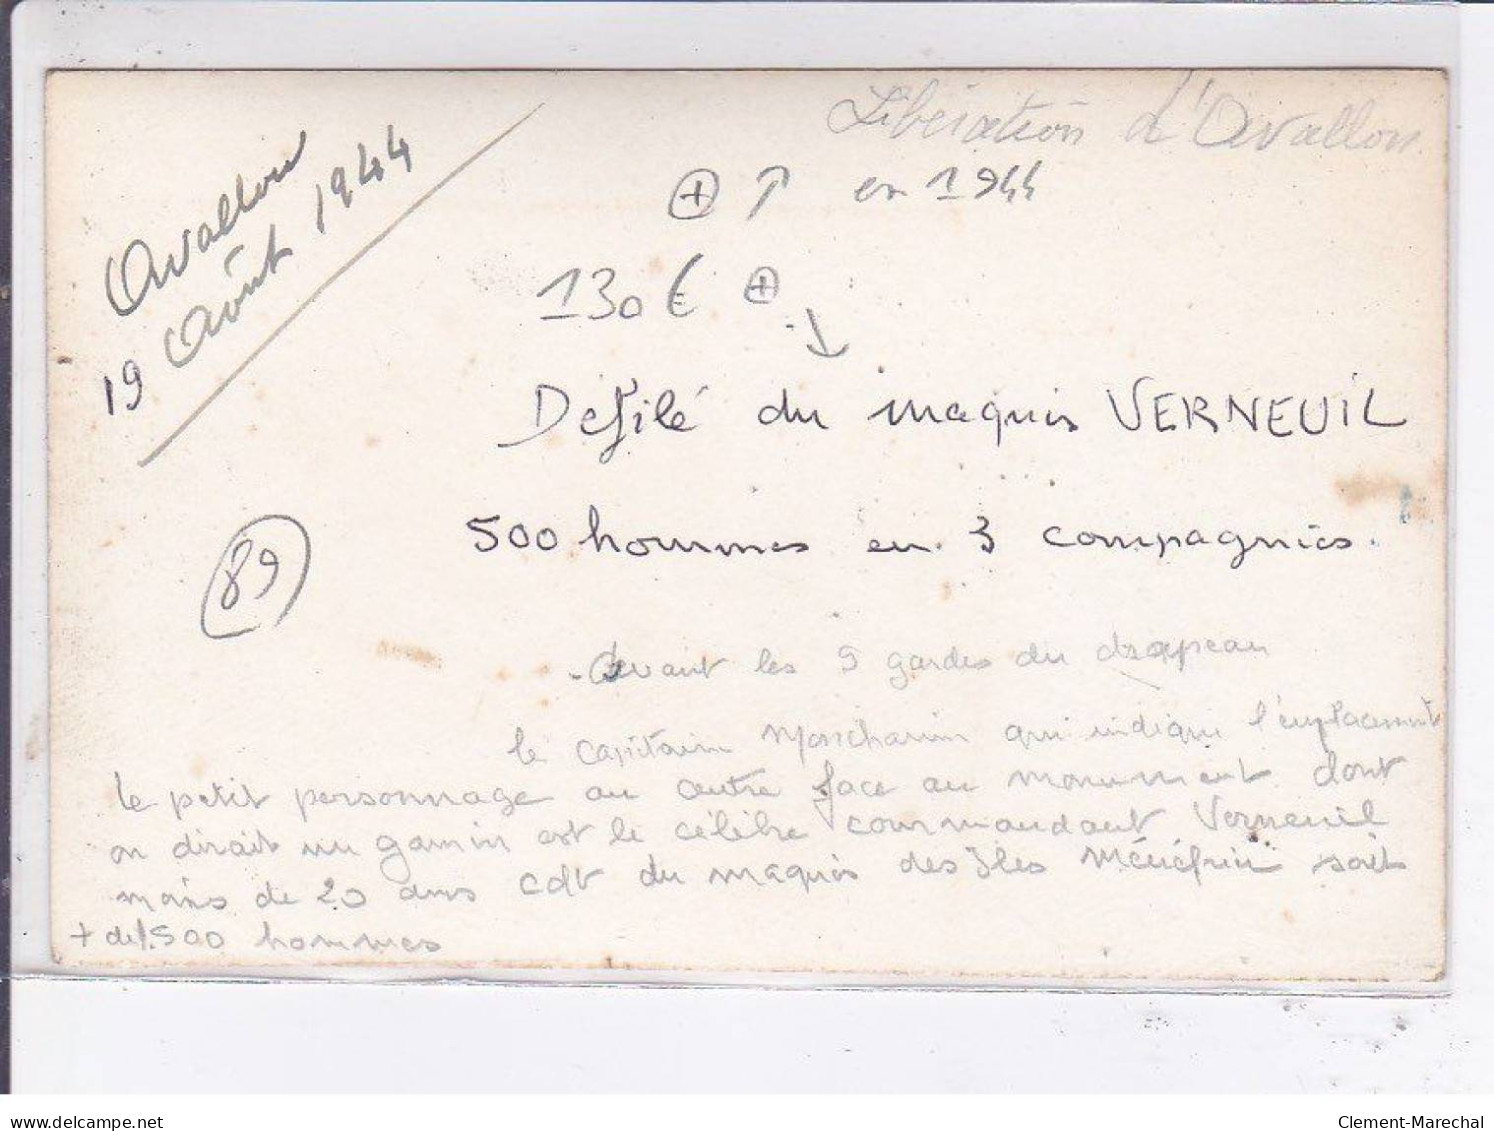 Libération d'Avallon
en 1944
Avallon
19 Août 1944
130 €
Defilé du maquis VERNEUIL
500 hommes en 3 compagnies.
89
- Devant les 9 gardes du drapeau
le capitaine qui indique l'emplacement
Le petit personnage au centre face au monument dont
on dirait un gamin est le célèbre commandant Verneuil
mais de 20 ans cdt du maquis des Iles Ménéfrier soit
+ de 1.500 hommes
www.delcampe.net
Clement-Marechal